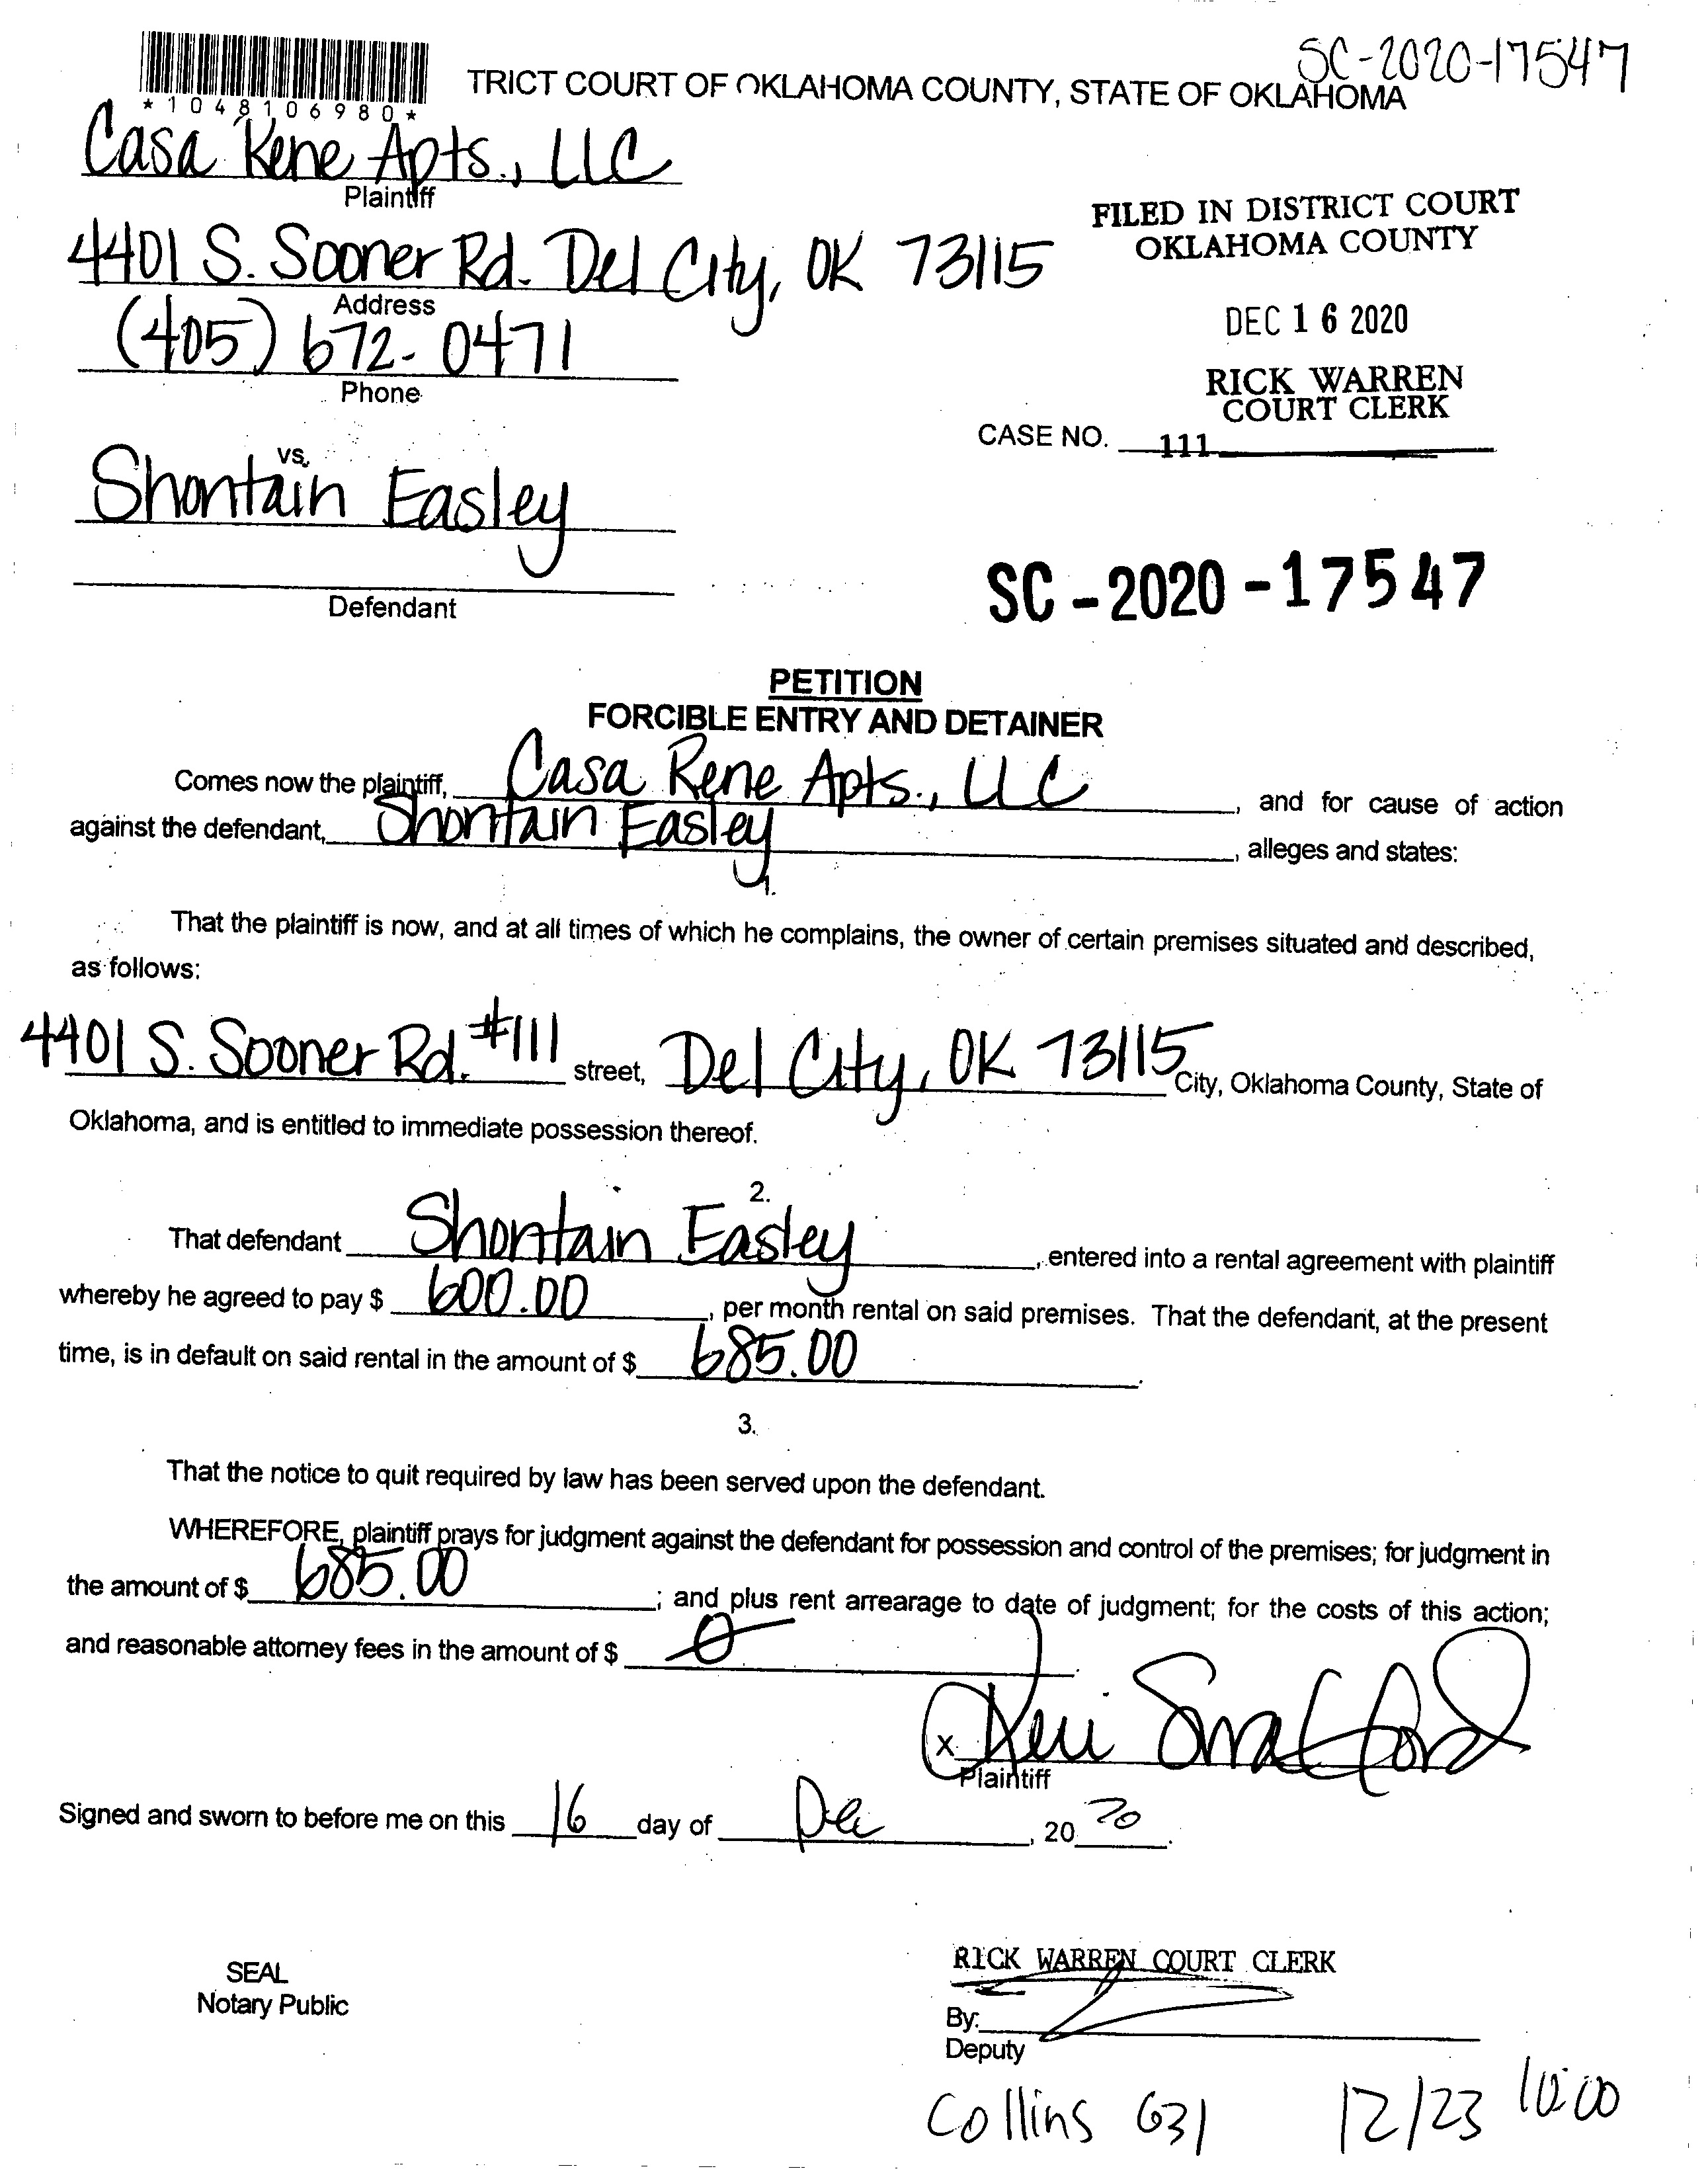 SC-2020-17547
TRICT COURT OF OKLAHOMA COUNTY, STATE OF OKLAHOMA
*1048106980*
Casa Rene Apts., LLC
Plaintiff
4401 S. Sooner Rd. Del City, OK 73115
Address
(405) 672-0471
Phone
FILED IN DISTRICT COURT
OKLAHOMA COUNTY
DEC 16 2020
RICK WARREN
COURT CLERK
CASE NO. 111
vs.
Shontain Easley
Defendant
SC-2020-17547
PETITION
FORCIBLE ENTRY AND DETAINER
Comes now the plaintiff, Casa Rene Apts., LLC, and for cause of action
against the defendant, Shontain Easley, alleges and states:
1.
That the plaintiff is now, and at all times of which he complains, the owner of certain premises situated and described,
as follows:
4401 S. Sooner Rd. #111 street, Del City, OK 73115 City, Oklahoma County, State of
Oklahoma, and is entitled to immediate possession thereof.
2.
That defendant Shontain Easley, entered into a rental agreement with plaintiff
whereby he agreed to pay $ 600.00, per month rental on said premises. That the defendant, at the present
time, is in default on said rental in the amount of $ 685.00.
3.
That the notice to quit required by law has been served upon the defendant.
WHEREFORE, plaintiff prays for judgment against the defendant for possession and control of the premises; for judgment in
the amount of $ 685.00; and plus rent arrearage to date of judgment; for the costs of this action;
and reasonable attorney fees in the amount of $ 0.
x Keri
Plaintiff
Signed and sworn to before me on this 16 day of Dec, 20 20.
SEAL
Notary Public
RICK WARREN COURT CLERK
By:
Deputy
Collins 631 12/23 10:00